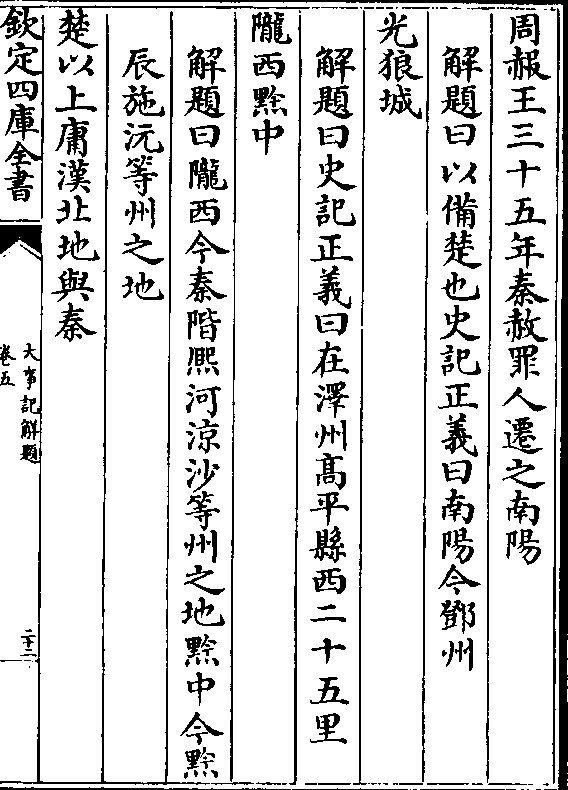 周赧王三十五年秦赦罪人遷之南陽
解題曰以備楚也史記正義曰南陽今鄧州
光狼城
解題曰史記正義曰在澤州高平縣西二十五里
隴西黥中
解題曰隴西今秦階熈河涼沙等州之地黥中今黥
辰施沅等州之地
楚以上庸漢北地與秦
欽定四庫全書
大事記解題
卷五
二十二